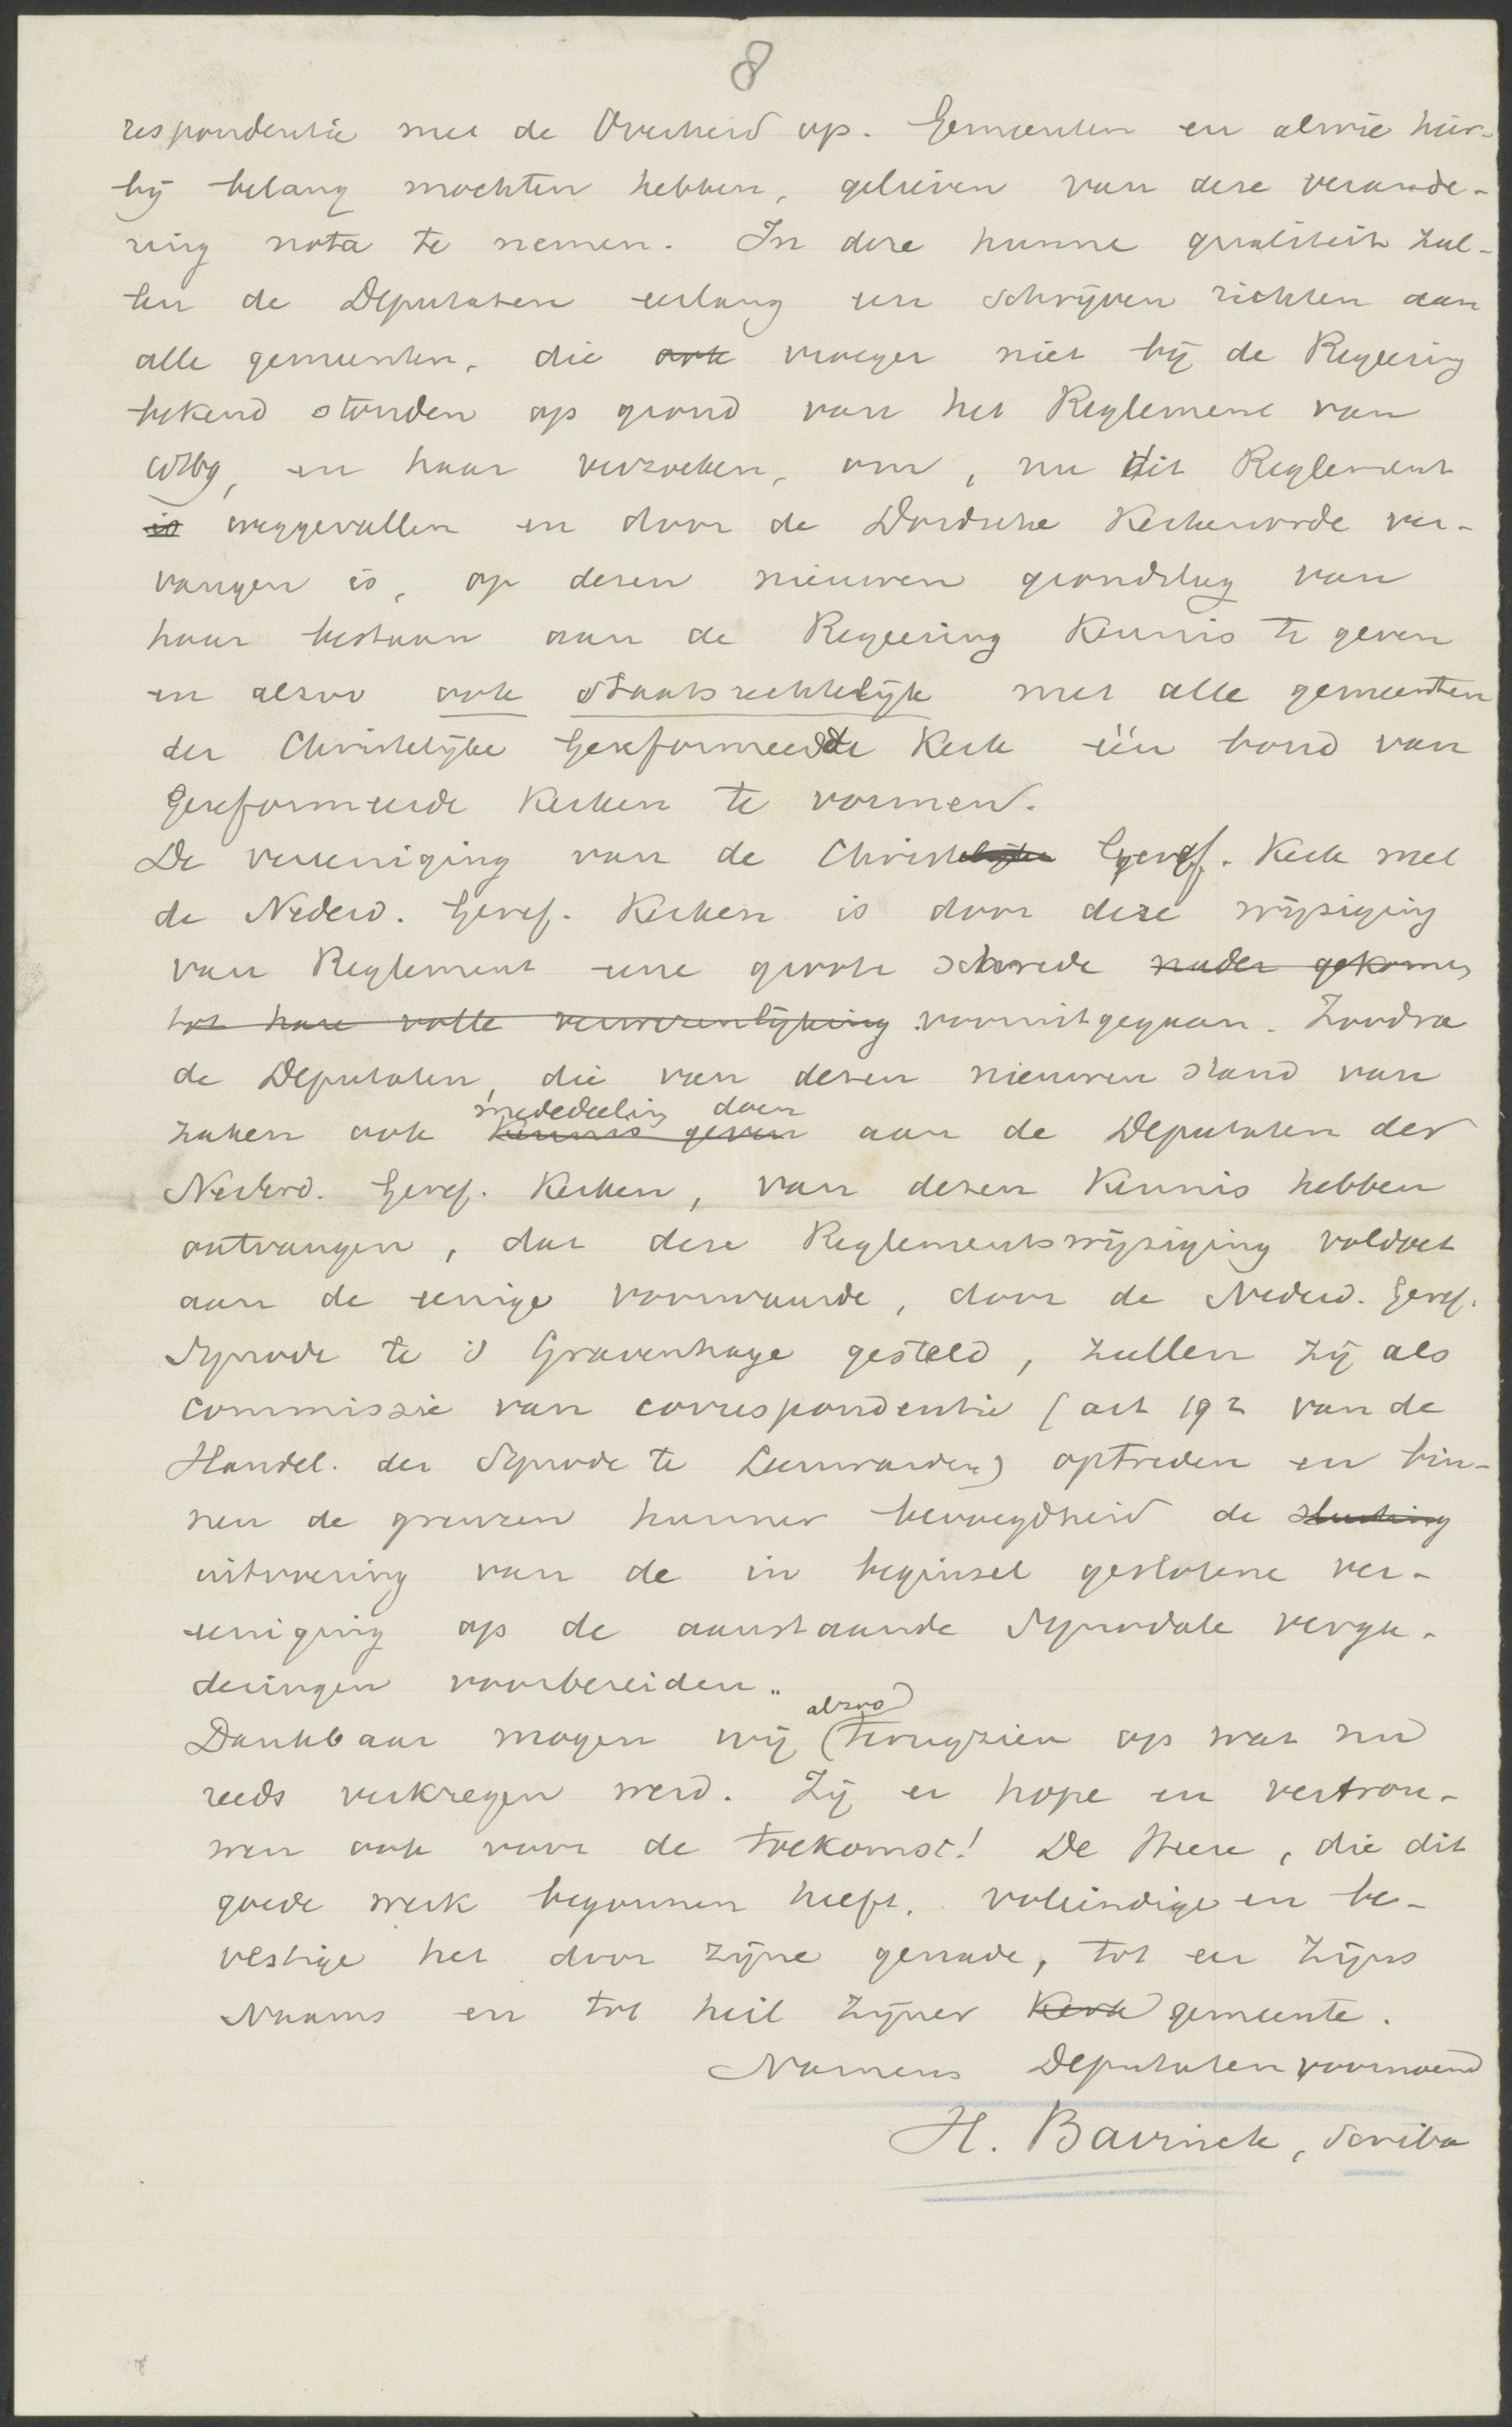 8
respondentie met de Overheid op. Gemeenten en alwie hier-
bij belang mochten hebben, gelieven van deze verande-
ring nota te nemen. In deze hunne qualiteit zul-
len de Deputaten eerlang een schrijven richten aan
alle gemeenten, die ook vroeger niet bij de Regeering
bekend stonden op grond van het Reglement van
en haar verzoeken, om, nu dit Reglement
is weggevallen en door de Dordsche Kerkenorde ver-
vangen is, op dezen nieuwen grondslag van
haar bestaan aan de Regeering Kennis te geven
en alzoo ook staatsrechtelijk met alle gemeenten
der Christelijke Gereformeerde Kerk één bond van
Gereformeerde Kerken te vormen.
De vereeniging van de Christelijke Geref. Kerk met
de Nederd. Geref. Kerken is door deze wijziging
van Reglement eene groote schrede nader gekomen
tot hare volle verwezenlijking vooruitgegaan. Zoodra
de Deputaten, die van dezen nieuwen stand van
mededeeling doen
zaken ook Kennis geven aan de Deputaten der
Nederd. Geref. Kerken, van dezen Kennis hebben
ontvangen, dat deze Reglementswijziging voldoet
aan de eenige voorwaarde, door de Nederd. Geref.
Synode te 's Gravenhage gesteld, zullen zij als
commissie van correspondentie (art 192 van de
Handel. der Synode te Leeuwarden) optreden en bin-
nen de grenzen hunner bevoegdheid de sluiting
uitvoering van de in beginsel geslotene ver-
eeniging op de aanstaande Synodale verga-
deringen voorbereiden."
alzoo
Dankbaar mogen wij terugzien op wat nu
reeds verkregen werd. Zij er hope en vertrou-
wen ook voor de toekomst! De Heere, die dit
goede werk begonnen heeft, voleindige en be-
vestige het door zijne genade, tot eer Zijns
Naams en tot heil zijner Kerk gemeente.
Namens Deputaten voornoemd
H. Bavinck, Scriba